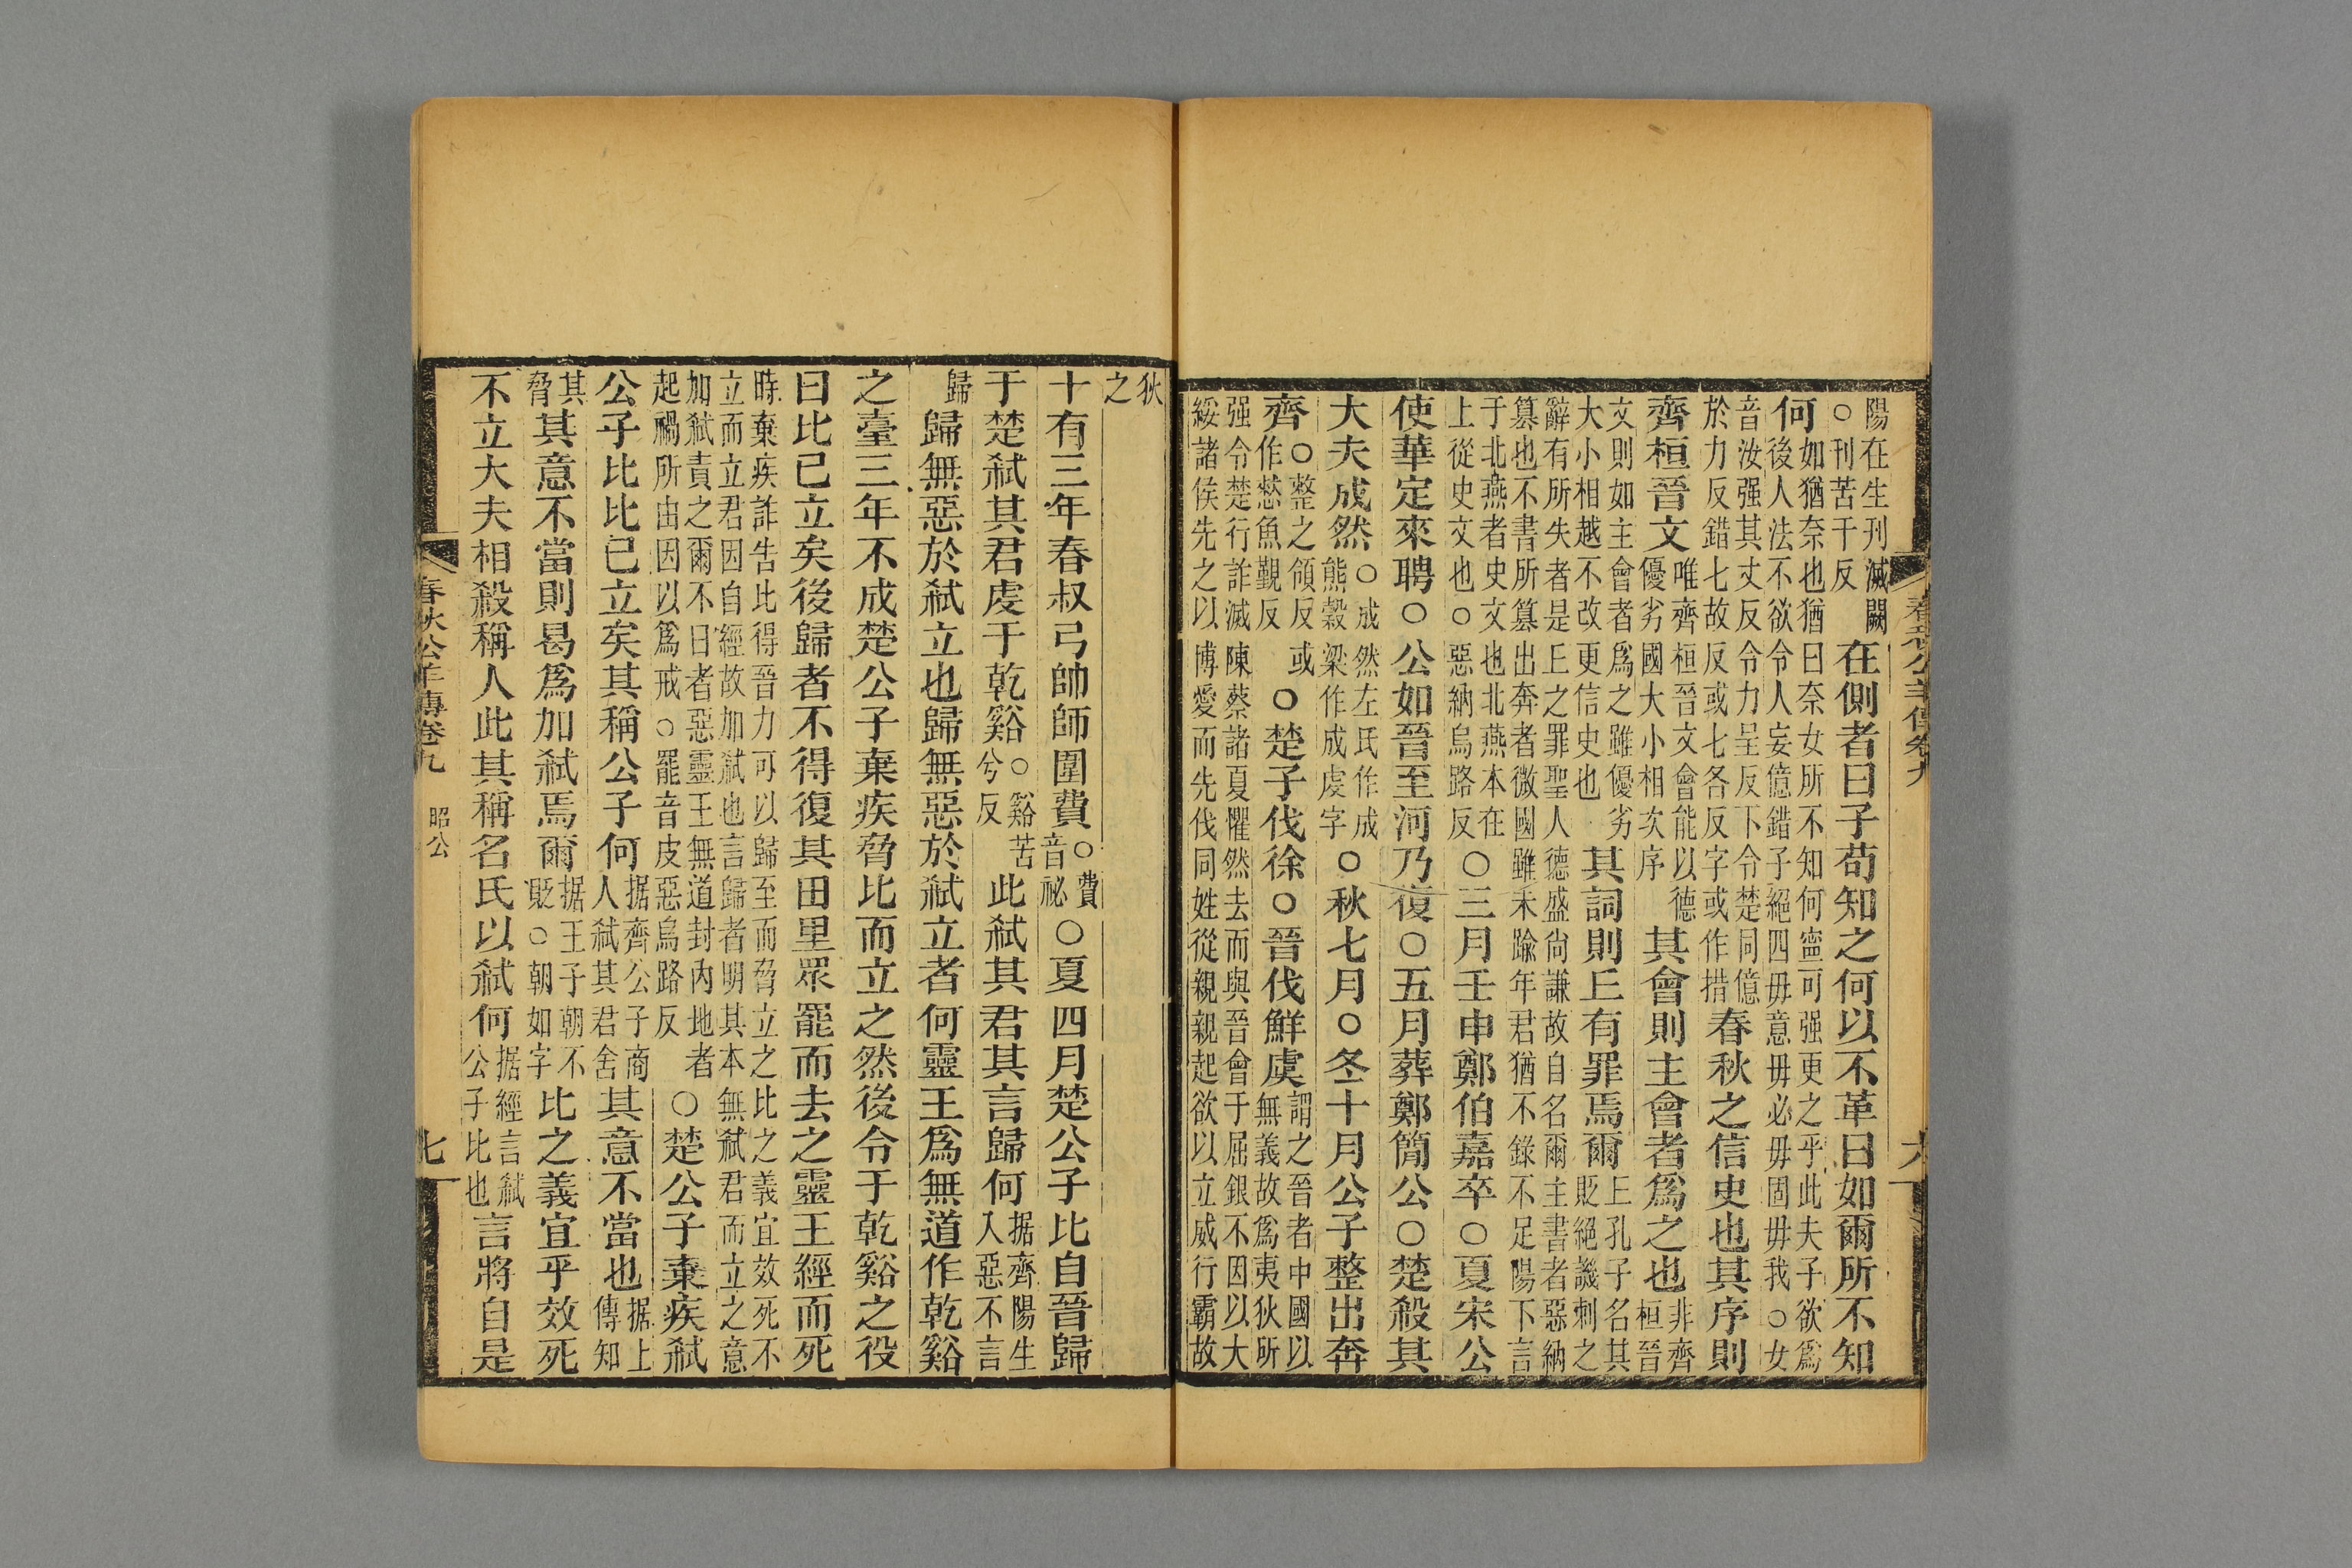 春秋公羊傳卷九 六
陽在生刊滅闕○刊苦干反在側者曰子苟知之何以不革曰如爾所不知
何如猶奈也猶曰奈女所不知何寍可强更之乎此夫子欲爲後人法不欲令人妄億錯子絕四毋意毋必毋固毋我○女
音汝强其丈反令力呈反下令楚同億於力反錯七故反或七各反字或作措春秋之信史也其序則
齊桓晉文唯齊桓晉文會能以德優劣國大小相次序其會則主會者爲之也非齊桓晉
文則如主會者爲之雖優劣大小相越不改更信史也其詞則丘有罪焉爾丘孔子名其貶絕譏刺之
辭有所失者是丘之罪聖人德盛尙謙故自名爾主書者惡納篡也不書所篡出奔者微國雖未踰年君猶不錄不足陽下言
于北燕者史文也北燕本在上從史文也○惡納烏路反○三月壬申鄭伯嘉卒○夏宋公
使華定來聘○公如晉至河乃復○五月葬鄭簡公○楚殺其
大夫成然○成然左氏作成熊穀梁作成虔字○秋七月○冬十月公子整出奔
齊○整之領反或作憖魚覲反○楚子伐徐○晉伐鮮虞謂之晉者中國以無義故爲夷狄所
强令楚行詐滅陳蔡諸夏懼然去而與晉會于屈銀不因以大綏諸侯先之以博愛而先伐同姓從親親起欲以立威行霸故
狄之
十有三年春叔弓帥師圍費○費音祕○夏四月楚公子比自晉歸
于楚弒其君虔于乾谿○谿苦兮反此弒其君其言歸何据齊陽生入惡不言
歸歸無惡於弒立也歸無惡於弒立者何靈王爲無道作乾谿
之臺三年不成楚公子棄疾脅比而立之然後令于乾谿之役
曰比已立矣後歸者不得復其田里眾罷而去之靈王經而死
時棄疾詐告比得晉力可以歸至而脅立之比之義宜效死不立而立君因自經故加弒也言歸者明其本無弒君而立之意
加弒責之爾不日者惡靈王無道封內地者起禍所由因以爲戒○罷音皮惡烏路反○楚公子棄疾弒
公子比比已立矣其稱公子何据齊公子商人弒其君舍其意不當也据上傳知
其脅其意不當則曷爲加弒焉爾据王子朝不貶○朝如字比之義宜乎效死
不立大夫相殺稱人此其稱名氏以弒何据經言弒公子比也言將自是
春秋公羊傳卷九 昭公 七